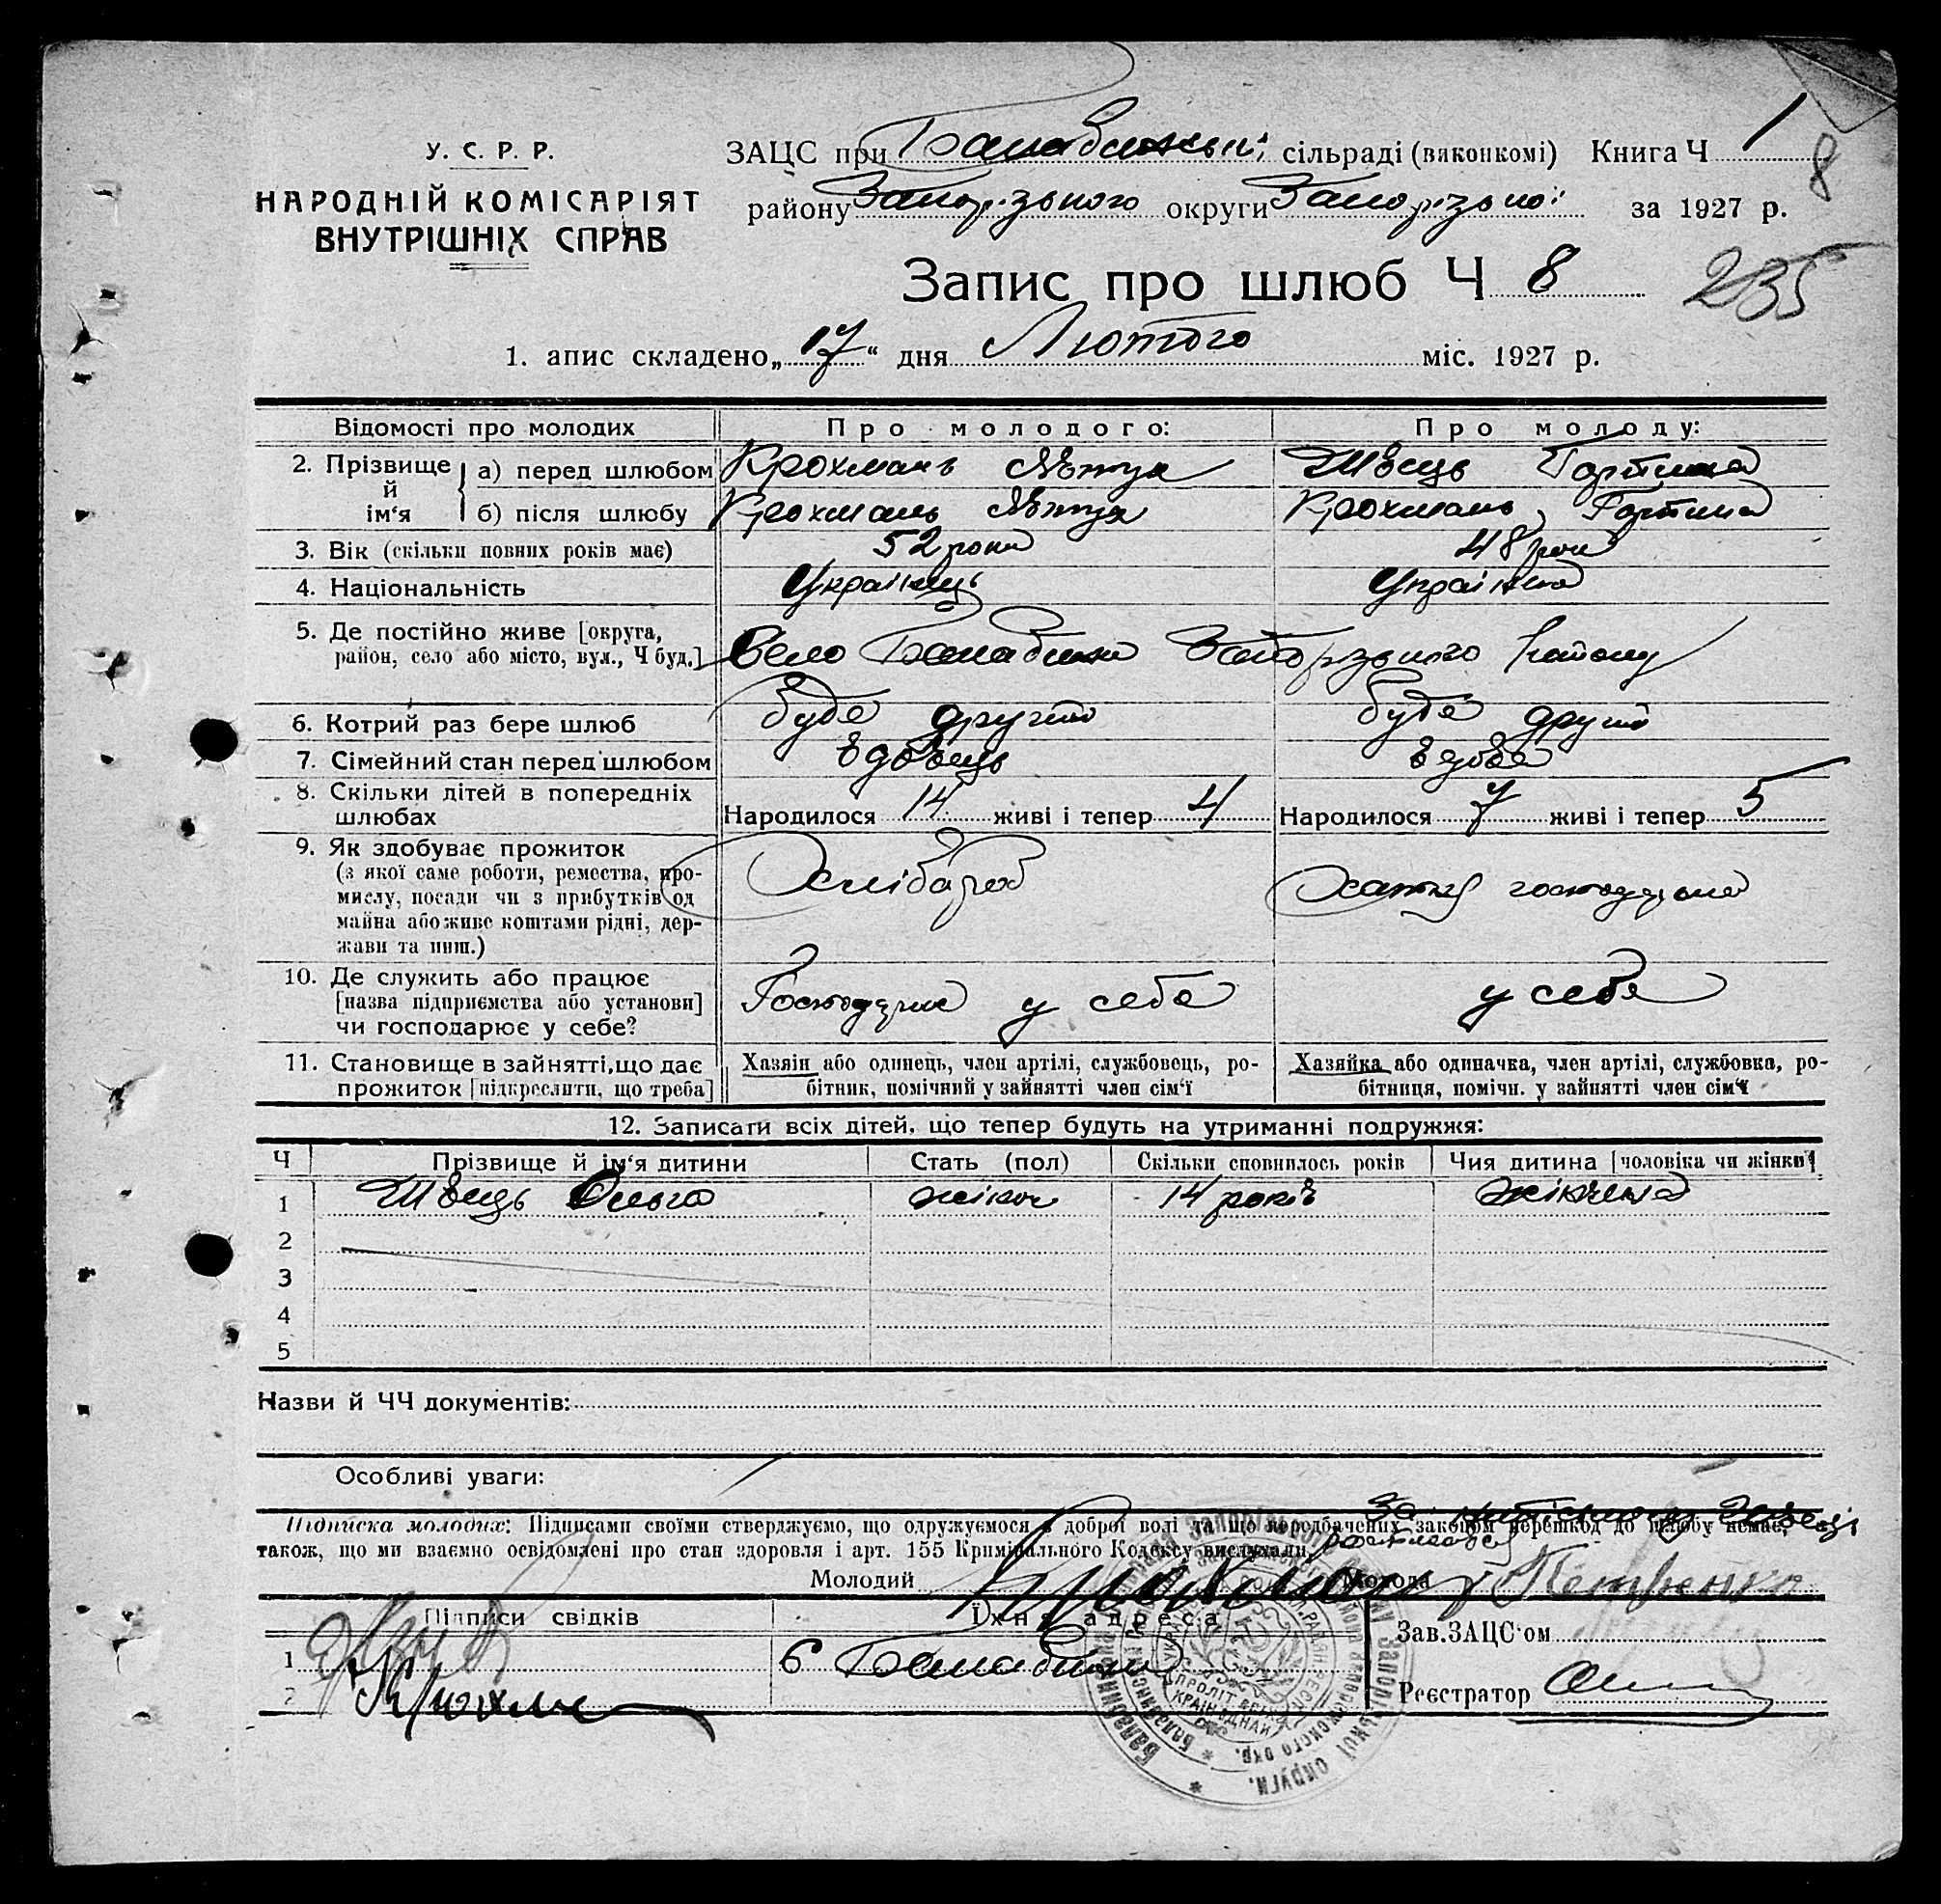 У. С. Р. Р.
НАРОДНІЙ КОМІСАРІЯТ
ВНУТРІШНІХ СПРАВ
ЗАЦС при Балабинській сільраді (виконкомі) Книга Ч 1
8
району Запорізького округи Запорізької за 1927 р.
Запис про шлюб Ч 8
235
1. апис складено „17“ дня Лютого міс. 1927 р.
Відомості про молодих Про молодого: Про молоду:
2. Прізвище й ім‘я а) перед шлюбом Крохмаль Швець
б) після шлюбу Крохмаль Крохмаль
3. Вік (скільки повних років має) 52 роки 48 рок
4. Національність Українець Українка
5. Де постійно живе [округа,
район, село або місто, вул., Ч буд.] Село Балабино Запорізького району
6. Котрий раз бере шлюб буде другий буде другий
7. Сімейний стан перед шлюбом вдовець вдова
8. Скільки дітей в попередніх
шлюбах Народилося 14 живі і тепер 4 Народилося 7 живі і тепер 5
9. Як здобуває прожиток
(з якої саме роботи, ремества, про-
мислу, посади чи з прибутків од
майна або живе коштами рідні, дер-
жави та инш.)
Хлібороб Хатня господарка
10. Де служить або працює
[назва підприємства або установи]
чи господарює у себе?
Господарює у себе у себе
11. Становище в зайнятті, що дає
прожиток [підкреслити, що треба]
Хазяїн або одинець, член артілі, службовець, ро-
бітник, помічний у зайнятті член сім‘ї
Хазяйка або одиначка, член артілі, службовка, ро-
бітниця, помічн. у зайнятті член сім‘ї
12. Записати всіх дітей, що тепер будуть на утриманні подружжя:
Ч Прізвище й ім‘я дитини Стать (пол) Скільки сповнилось років Чия дитина [чоловіка чи жінки]
1 Швець Ольга жіноч 14 років жінчина
2
3
4
5
Назви й ЧЧ документів:
Особливі уваги:
Підписка молодих: Підписами своїми стверджуємо, що одружуємося з доброї волі та що передбачених законом перешкод до шлюбу немає,
також, що ми взаємно освідомлені про стан здоровля і арт. 155 Кримінального Кодексу вислухали.
Молодий Молода Петренко
Підписи свідків Їхня адреса Зав. ЗАЦС‘ом
1 с Балабино
2 Реєстратор